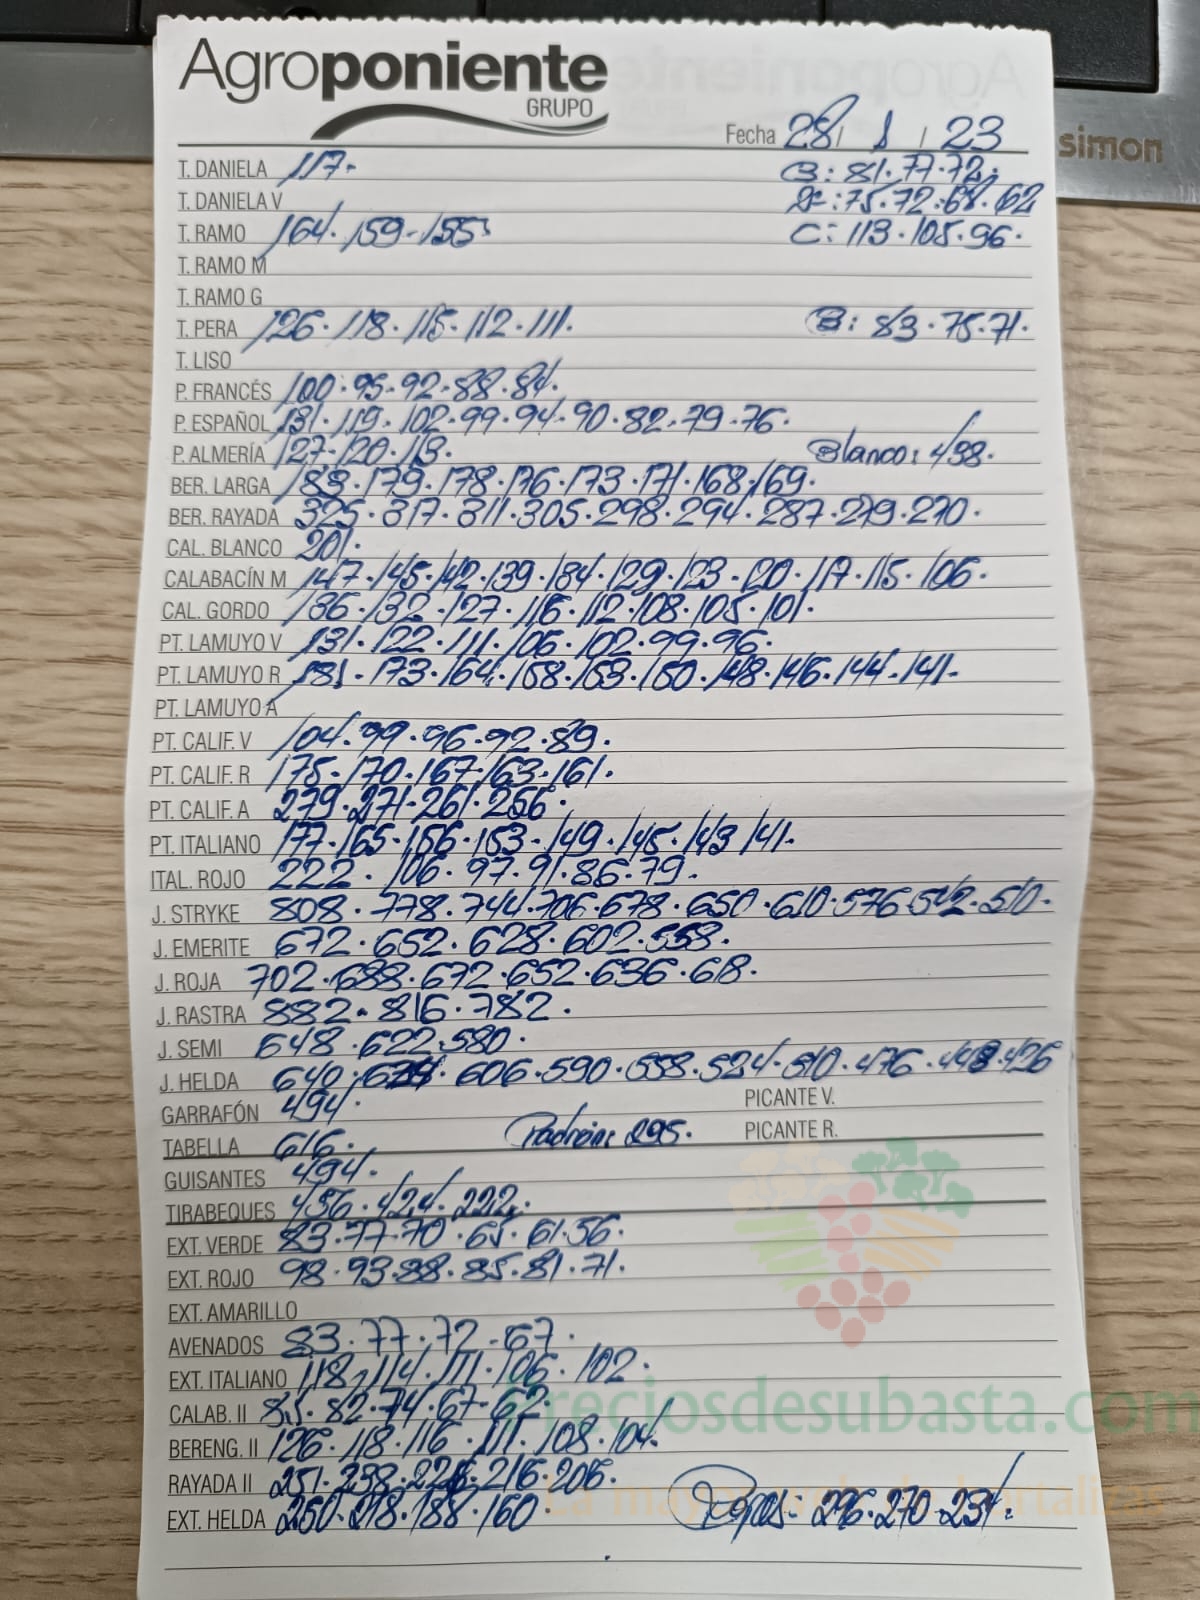 Agroponiente
GRUPO
simon
Fecha 28 / 1 / 23
T. DANIELA 117. B: 81.77.72.
T. DANIELA V :75.72.68.62
T. RAMO 164.159.155 C: 113.105.96.
T. RAMO M
T. RAMO G
T. PERA 126.118.115.112.111. B: 83.75.71.
T. LISO
P. FRANCÉS 100.95.92.88.84.
P. ESPAÑOL 131.119.102.99.94.90.82.79.76.
P. ALMERÍA 127.120.113. Blanco: 438.
BER. LARGA 183.179.178.176.173.171.168.169.
BER. RAYADA 325.317.311.305.298.294.287.279.270.
CAL. BLANCO 201.
CALABACÍN M 147.145.142.139.134.129.123.120.117.115.106.
CAL. GORDO 136.132.127.116.112.108.105.101.
PT. LAMUYO V 131.122.111.106.102.99.96.
PT. LAMUYO R 181.173.164.158.153.150.148.146.144.141.
PT. LAMUYO A
PT. CALIF. V 104.99.96.92.89.
PT. CALIF. R 175.170.167.163.161.
PT. CALIF. A 279.271.261.256.
PT. ITALIANO 177.165.156.153.149.145.143.141.
ITAL. ROJO 222. 106.97.91.86.79.
J. STRYKE 808.778.744.706.678.650.610.576.542.510.
J. EMERITE 672.652.628.602.558.
J. ROJA 702.688.672.652.636.618.
J. RASTRA 882.816.782.
J. SEMI 648.622.580.
J. HELDA 640. 606.590.558.524.510.476.448.426
GARRAFÓN 494. PICANTE V.
TABELLA 616. Padrón: 295. PICANTE R.
GUISANTES 494.
TIRABEQUES 436.424.222.
EXT. VERDE 83.77.70.65.61.56.
EXT. ROJO 98.93.88.85.81.71.
EXT. AMARILLO
AVENADOS 83.77.72.67.
EXT. ITALIANO 118.114.111.106.102.
CALAB. II 85.82.74.67.62.
Preciosdesubasta.com
BERENG. II 126.118.116.111.108.104.
RAYADA II 251.238.226.216.206.
La mayor web de hortalizas
EXT. HELDA 250.218.188.160 Rojas: 296.270.234.